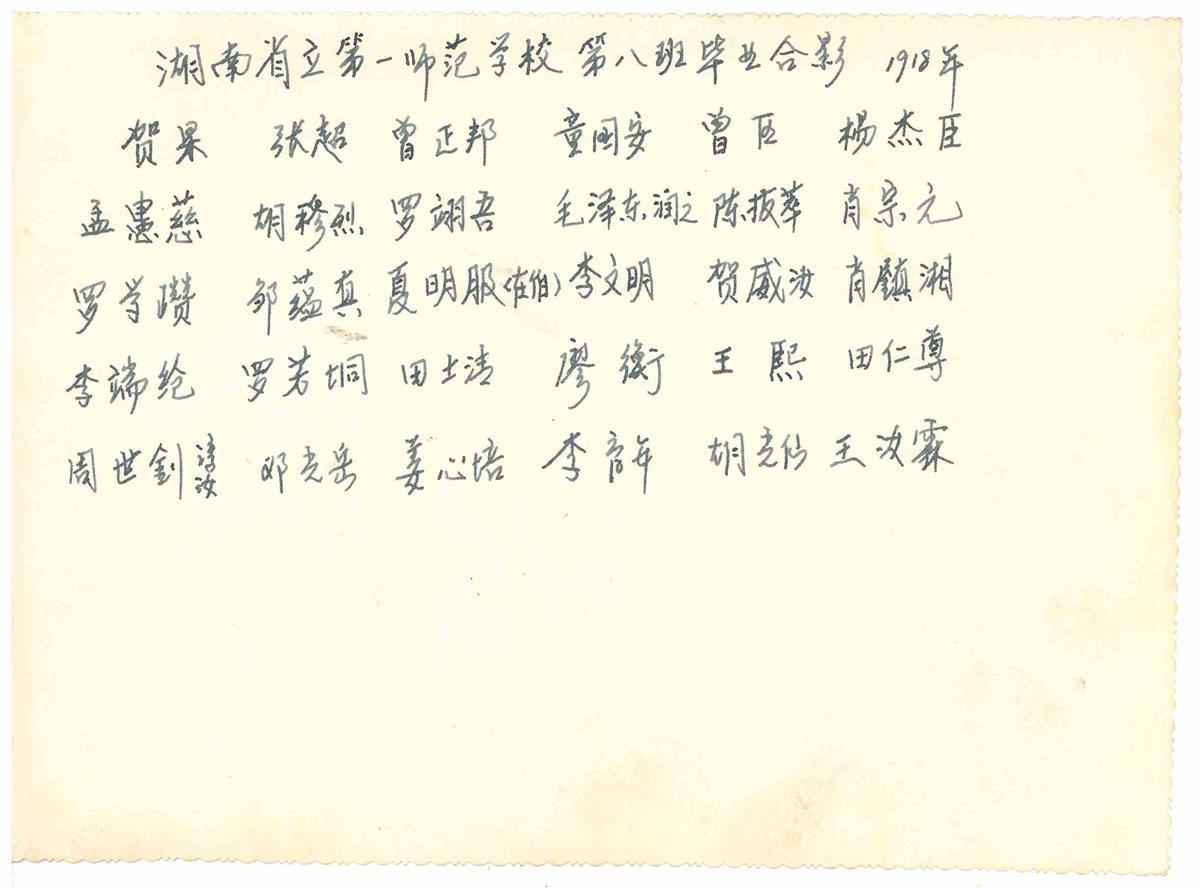 湖南省立第一师范学校 第八班毕业合影 1918年
贺果 张超 曾正邦 童国安 曾臣 杨杰臣
孟惠慈 胡穆烈 罗翊吾 毛泽东润之 陈拔萃 肖宗元
罗学瓒 邹蕴真 夏明服(在伯) 李文明 贺威汝 肖鎮湘
李端纶 罗若垌 田士清 廖衡 王熙 田仁尊
周世釗惇汝 邓光岳 姜心培 李育年 胡光 王汝霖